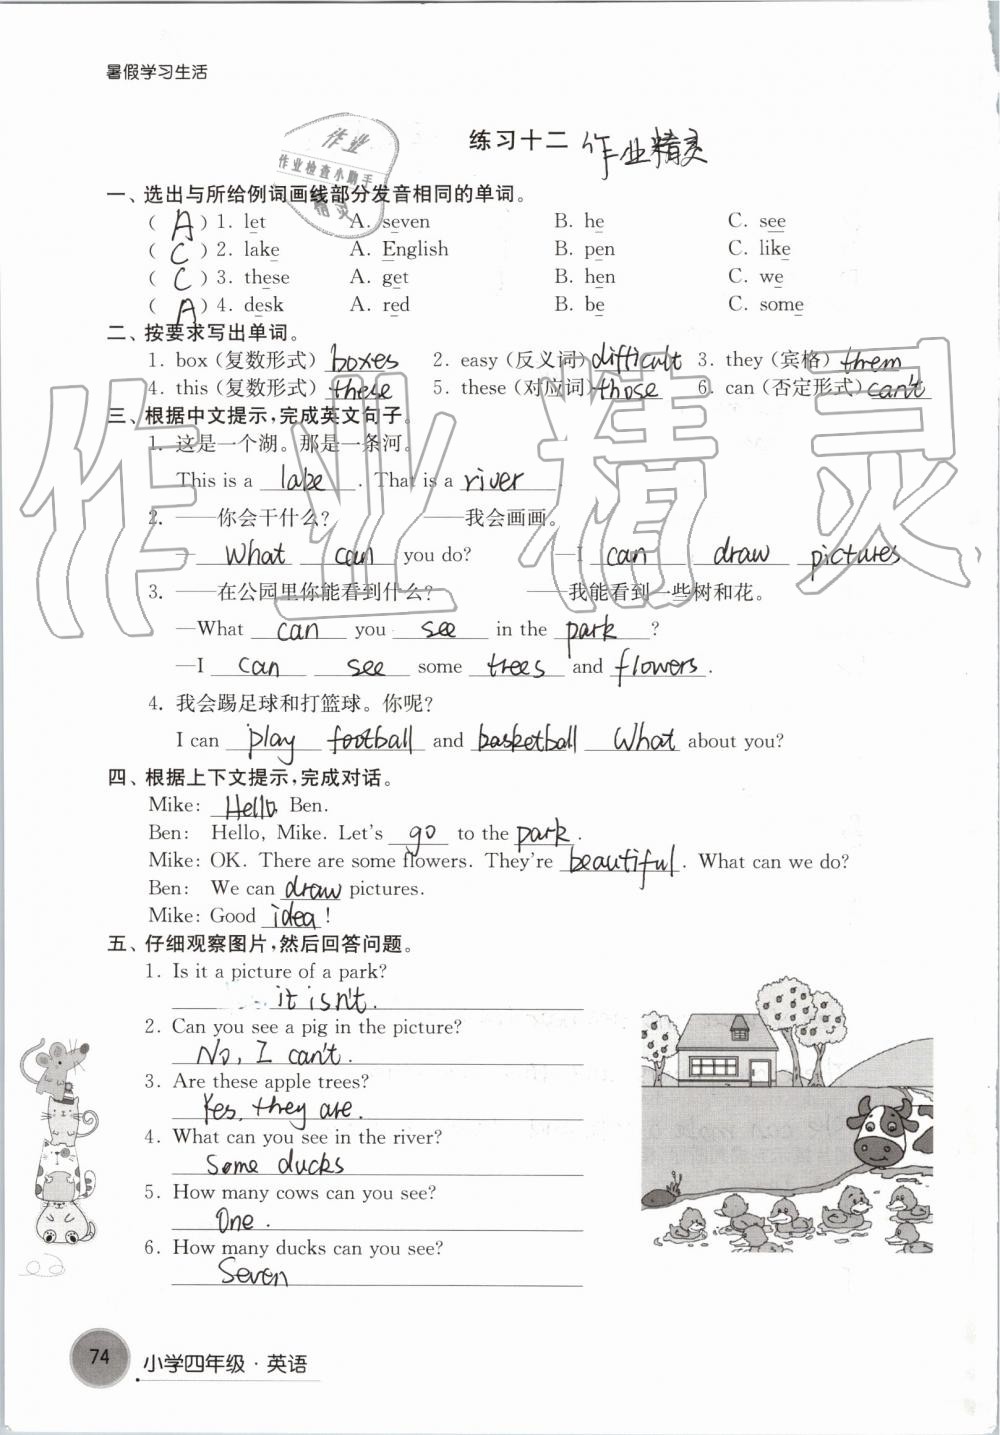 暑假学习生活
练习十二 作业精灵
作业
作业检查小助手
精灵
一、选出与所给例词画线部分发音相同的单词。
( A ) 1. let A. seven B. he C. see
( C ) 2. lake A. English B. pen C. like
( C ) 3. these A. get B. hen C. we
( A ) 4. desk A. red B. be C. some
二、按要求写出单词。
1. box (复数形式) boxes 2. easy (反义词) difficult 3. they (宾格) them
4. this (复数形式) these 5. these (对应词) those 6. can (否定形式) can't
三、根据中文提示,完成英文句子。
1. 这是一个湖。那是一条河。
This is a lake . That is a river .
2. ——你会干什么? ——我会画画。
— What can you do? —I can draw pictures
3. ——在公园里你能看到什么? ——我能看到一些树和花。
—What can you see in the park ?
—I can see some trees and flowers .
4. 我会踢足球和打篮球。你呢?
I can play football and basketball What about you?
四、根据上下文提示,完成对话。
Mike: Hello, Ben.
Ben: Hello, Mike. Let's go to the park .
Mike: OK. There are some flowers. They're beautiful . What can we do?
Ben: We can draw pictures.
Mike: Good idea !
五、仔细观察图片,然后回答问题。
1. Is it a picture of a park?
it isn't.
2. Can you see a pig in the picture?
No, I can't.
3. Are these apple trees?
Yes, they are.
4. What can you see in the river?
Some ducks
5. How many cows can you see?
One.
6. How many ducks can you see?
Seven
74 小学四年级·英语
作业精灵